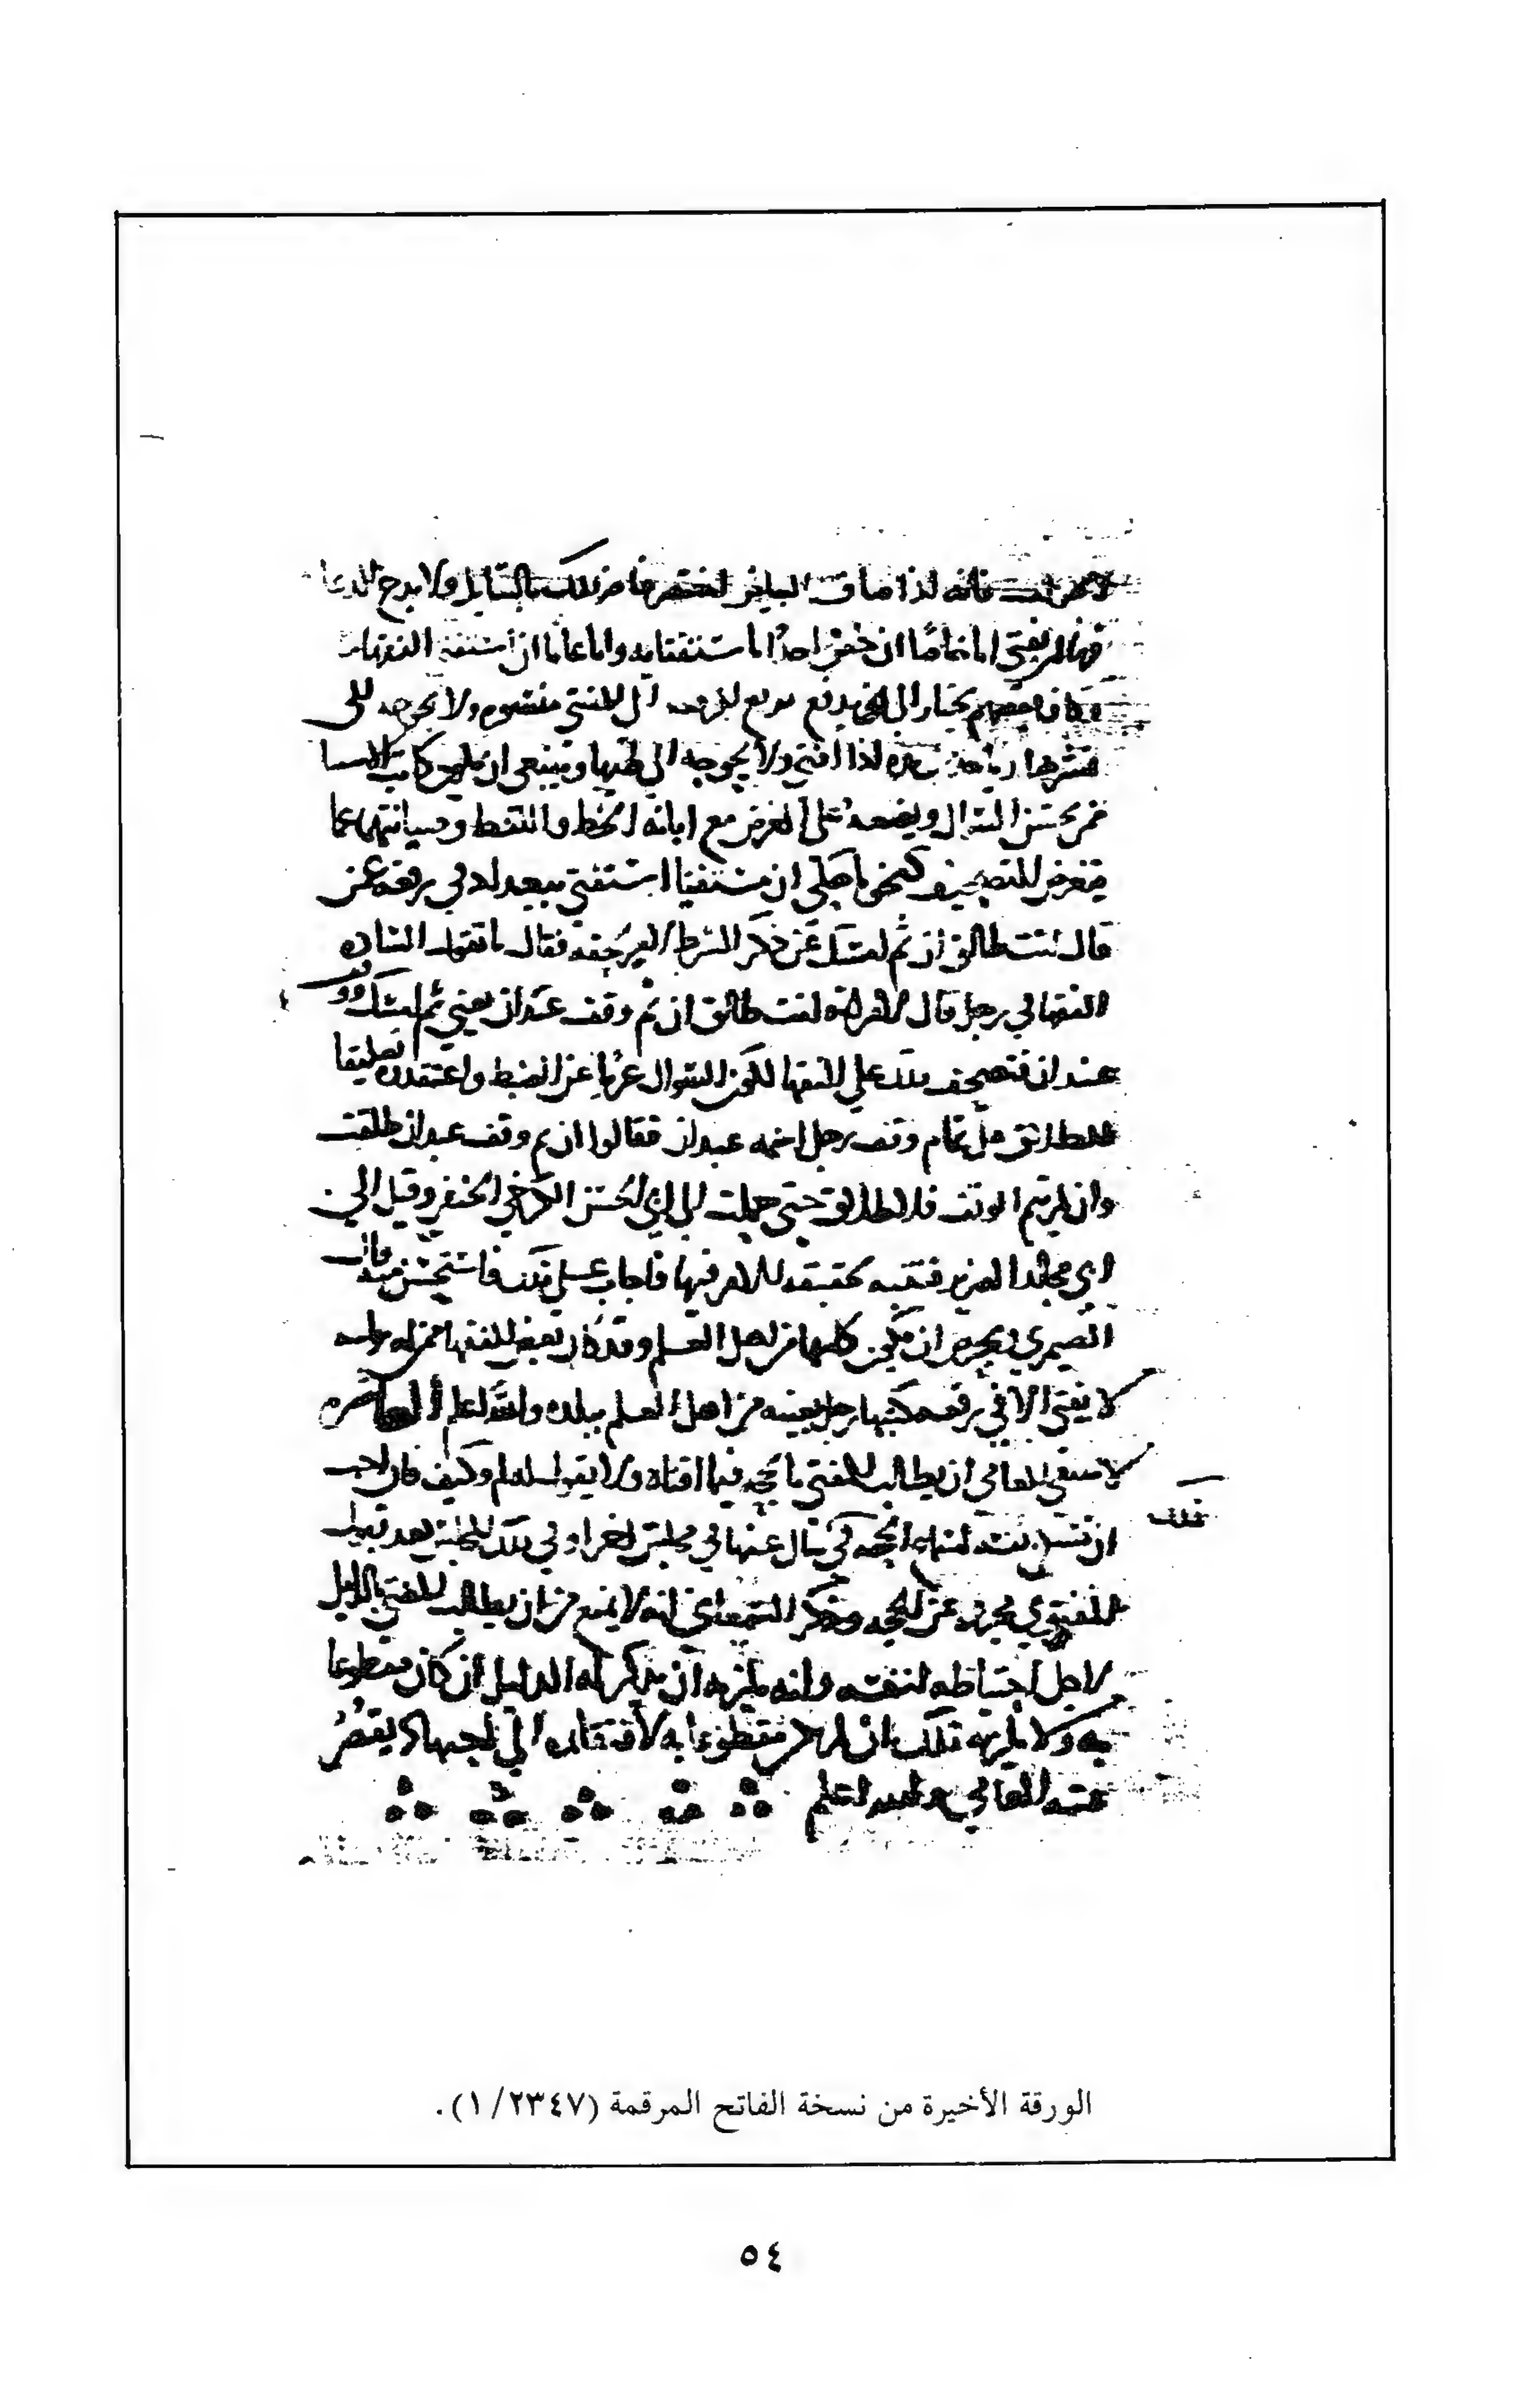 فانه اذا ضاق البياض اختصرها فاضر ذلك بالسايل ولا يدع الدعا
فيها لمن يفتي اما خاصا ان خص احدا باستفتايه واما عاما ان استفتى الفقهاء
وكان بعضهم يختار ان يدفع الرقعة الى المفتي منشورة ولا يحوجه الى
نشرها وياخذها من يده اذا افتى ولا يحوجه الى طيها وينبغي ان يكون كاتب الاستفتا
ممن يحسن السوال ويضعه على الغرض مع ابانة الخط واللفظ وصيانتهما عما
يتعرض للتصحيف كنحو ما حكي ان مستفتيا استفتى ببغداد في رقعة عمن
قال انت طالق ان ثم امسك عن ذكر الشرط لامر لحقه فقال ما تقول السادة
الفقها في رجل قال لامراته انت طالق ان ثم وقف عند ان يعني ثم امسك ووقف
عند ان فتصحف ذلك على الفقها لكون السوال عريا عن الضبط واعتقدوه تعليقا
للطلاق على تمام وقف رجل اسمه عبدان فقالوا ان تم وقف عبدان طلقت
وان لم يتم الوقف فلا طلاق حتى حملت الى ابي الحسن الكرخي الحنفي وقيل الى
ابي مجالد الضرير فتنبه لحقيقة الامر فيها فاجاب على ذلك فاستحسن منه قال
الصيمري ويحرص ان يكون كاتبها من اهل العلم وقد كان بعض الفقها ممن له رياسة
لا يفتي الا في رقعة كتبها رجل بعينه من اهل العلم ببلده والله اعلم العاشرة
لا ينبغي للعامي ان يطالب المفتي بالحجة فيما افتاه ولا يقول له لم وكيف فان احب
ان تسكن نفسه لسماع الحجة في ذلك سال عنها في مجلس اخر او في ذلك المجلس بعد قبول
الفتوى مجردة عن الحجة وذكر السمعاني انه لا يمنع من ان يطالب المفتي بالدليل
لاجل احتياطه لنفسه وانه يلزمه ان يذكر له الدليل ان كان مقطوعا
به ولا يلزمه ذلك ان لم يكن مقطوعا به لافتقاره الى اجتهاد يقصر
عنه العامي والله اعلم
الورقة الأخيرة من نسخة الفاتح المرقمة (٢٣٤٧/ ١).
٥٤